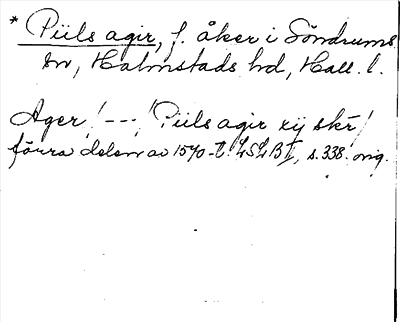 * Piils agir, f. åker i Söndrums
sn, Halmstads hd, Hall. l.
Ager! ---! Piils agir xij skr!
förra delen av 1570-t. LSLB I, s. 338. orig.